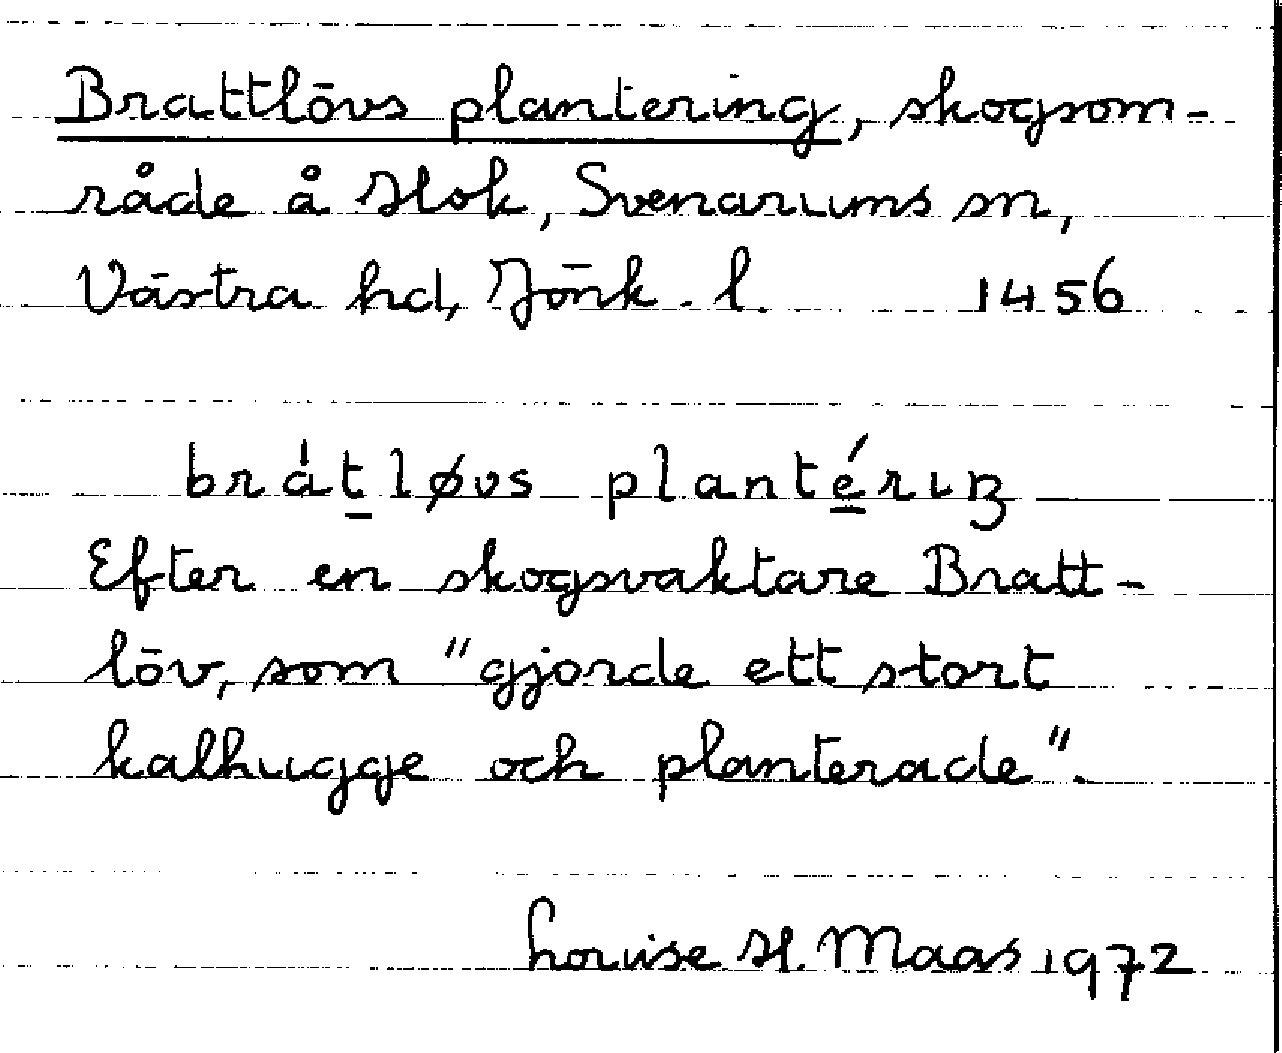 Brattlövs plantering, skogsom-
råde å Hok, Svenarums sn,
Västra hd, Jönk. l. 1456
brát̲løvs planté̲rıŋ
Efter en skogsvaktare Bratt-
löv, som "gjorde ett stort
kalhugge och planterade".
Louise H. Maas 1972